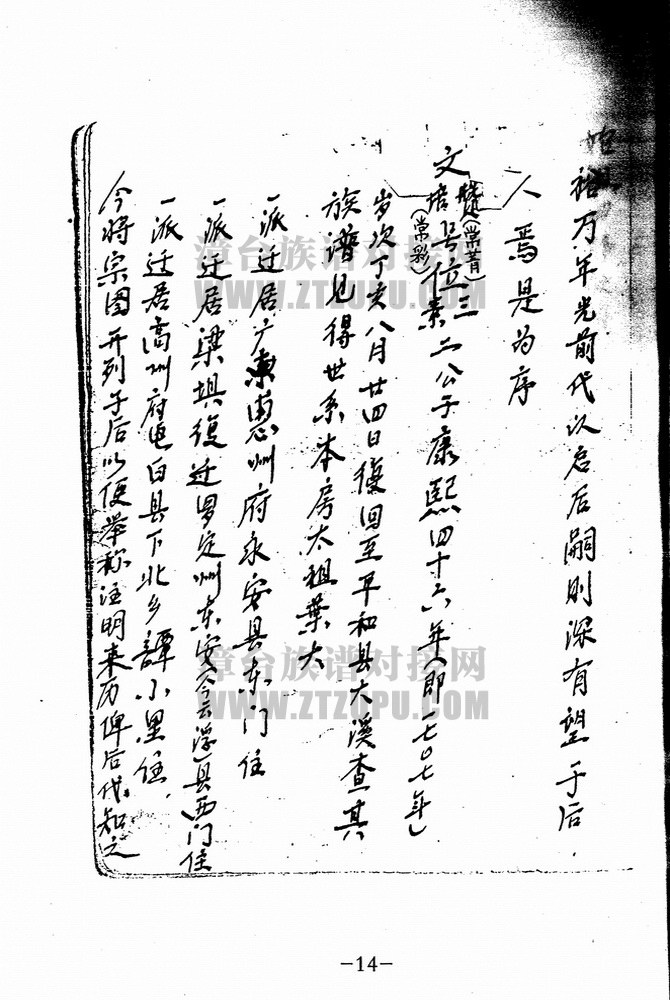 裕万年光前代以启后嗣则深有望于后
人焉是为序
文赞(常菁)号位三
培(常彩)号位素二公于康熙四十六年(即一七0七年)
岁次丁亥八月廿四日复回至平和县大溪查其
族谱见得世系本房太祖叶大
一派迁居广东惠州府永安县东门住
一派迁居梁埧复迁罗定州东安(今云浮)县西门住
一派迁居高州府电白县下北乡譚小里住
今将宗图开列于后以便举称注明来历俾后代知之
漳台族谱对接网
WWW.ZTZUPU.COM
漳台族谱对接网
WWW.ZTZUPU.COM
-14-